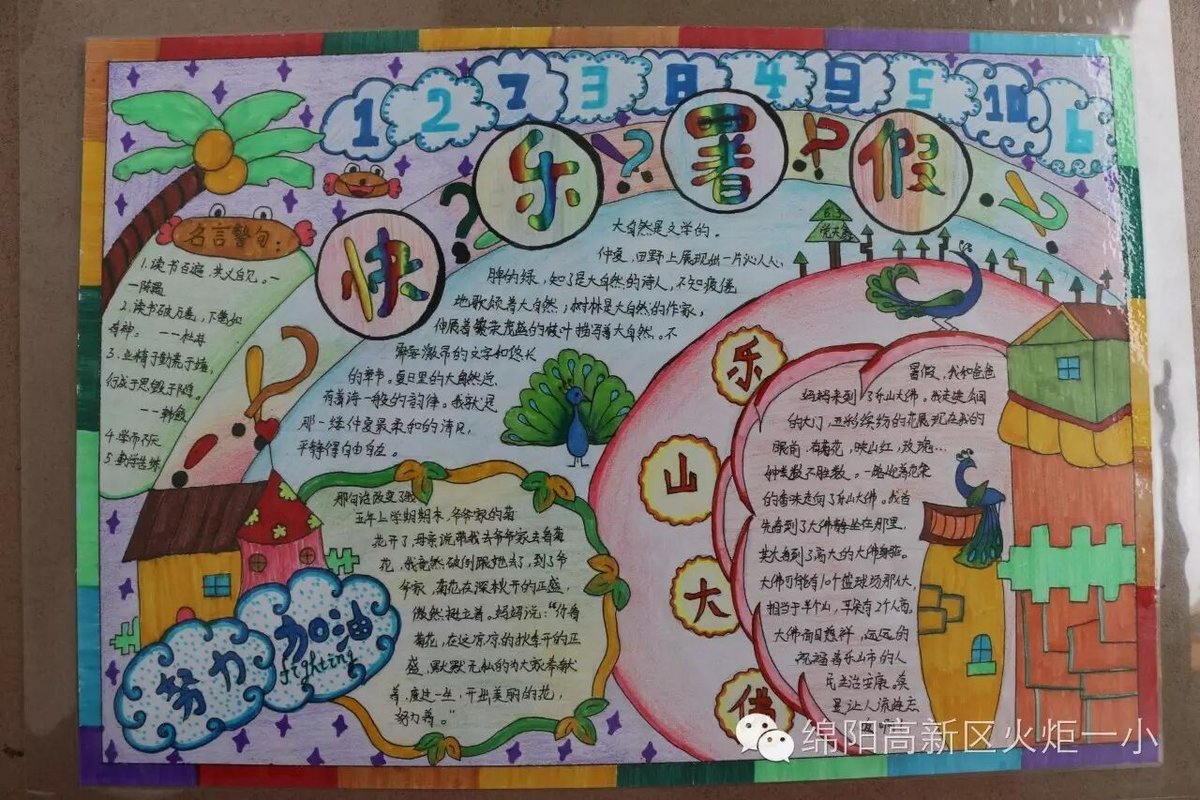 1 2 7 3 8 4 9 5 10 6
快乐暑假
名言警句:
1.读书百遍,其义自见。—
—陈遇
2.读书破万卷,下笔如
有神。——杜甫
3.业精于勤荒于嬉,
行成于思毁于随。
——韩愈
4.学而不厌
5.
大自然是文学的。
仲夏,田野上展现出一片沁人心
脾的绿,知了是大自然的诗人,不知疲倦
地歌颂着大自然;树林是大自然的作家,
伸展着繁荣茂盛的枝叶描写着大自然。不
需要激昂的文字和悠长
的章节。夏日里的大自然近
有着诗一般的韵律。我就是
那一缕仲夏最柔和的清风,
平静得自由自在。
那句话改变了我
五年上学期期末,爷爷家的菊
花开了,母亲说带我去爷爷家去看菊
花,我竟然破例跟她去了,到了爷
爷家,菊花在深秋开的正盛,
傲然挺立着。妈妈说:“你看
菊花,在这凉凉的秋季开的正
盛,默默无私的为大家奉献
着,度过一生,开出美丽的花,
努力着。”
努力加油
fighting
乐山大佛
暑假,我和爸爸
妈妈来到了乐山大佛。我走进公园
的大门,五彩缤纷的花展现在我的
眼前,有菊花,映山红,玫瑰…
种类数不胜数。一路迎着花朵
的香味走向了乐山大佛。我首
先看到了大佛静坐在那里,
其次看到了高大的大佛身躯。
大佛可能有10个篮球场那么大,
相当于半个山,耳朵有2个人高。
大佛面目慈祥,远远的
祝福着乐山市的人
民生活安康。真
是让人流连忘
绵阳高新区火炬一小